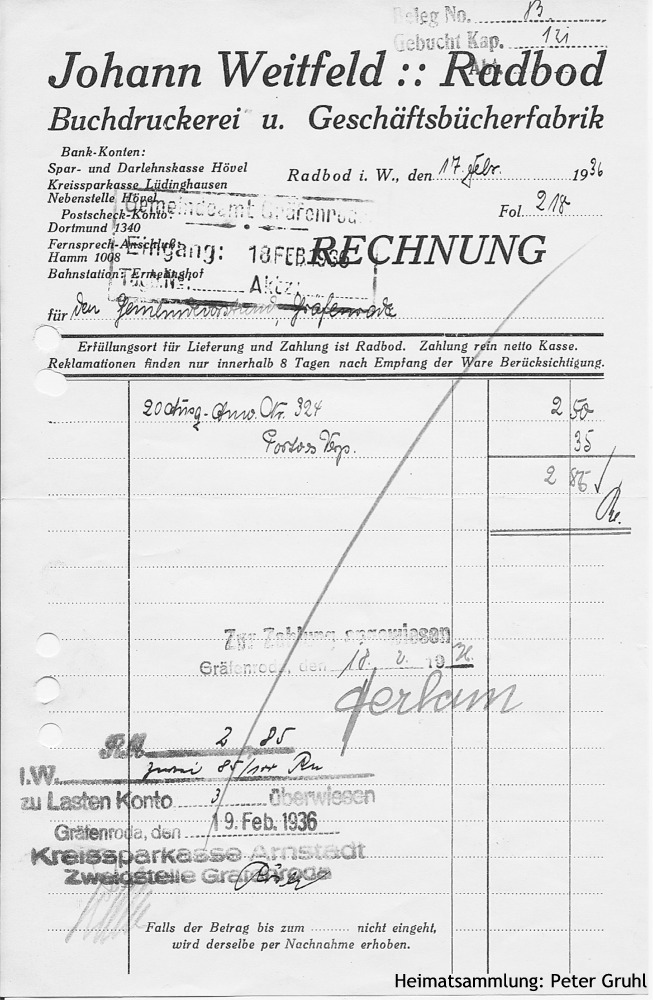 Beleg No. 83
Gebucht Kap. 121
Abt.
Johann Weitfeld :: Radbod
Buchdruckerei u. Geschäftsbücherfabrik
Bank-Konten:
Spar- und Darlehnskasse Hövel
Kreissparkasse Lüdinghausen
Nebenstelle Hövel
Postscheck-Konto:
Dortmund 1340
Fernsprech-Anschluß:
Hamm 1008
Bahnstation: Ermelinghof
Radbod i. W., den 17. Febr. 1936
Fol. 218
Gemeindeamt Gräfenroda
Eingang: 18 FEB. 1936
Tgb. Nr. Aktz:
RECHNUNG
für den Gemeindevorstand, Gräfenroda
Erfüllungsort für Lieferung und Zahlung ist Radbod. Zahlung rein netto Kasse.
Reklamationen finden nur innerhalb 8 Tagen nach Empfang der Ware Berücksichtigung.
20 Ausg.-Anw. Nr. 324 2 50
Porto u Verp. 35
2 85
Zur Zahlung angewiesen
Gräfenroda, den 18. 2. 19 36
RM 2,85
i.W. zwei 85/100 Rm
zu Lasten Konto 3 überwiesen
Gräfenroda, den 19. Feb. 1936
Kreissparkasse Arnstadt
Zweigstelle Gräfenroda
Falls der Betrag bis zum ........ nicht eingeht,
wird derselbe per Nachnahme erhoben.
Heimatsammlung: Peter Gruhl